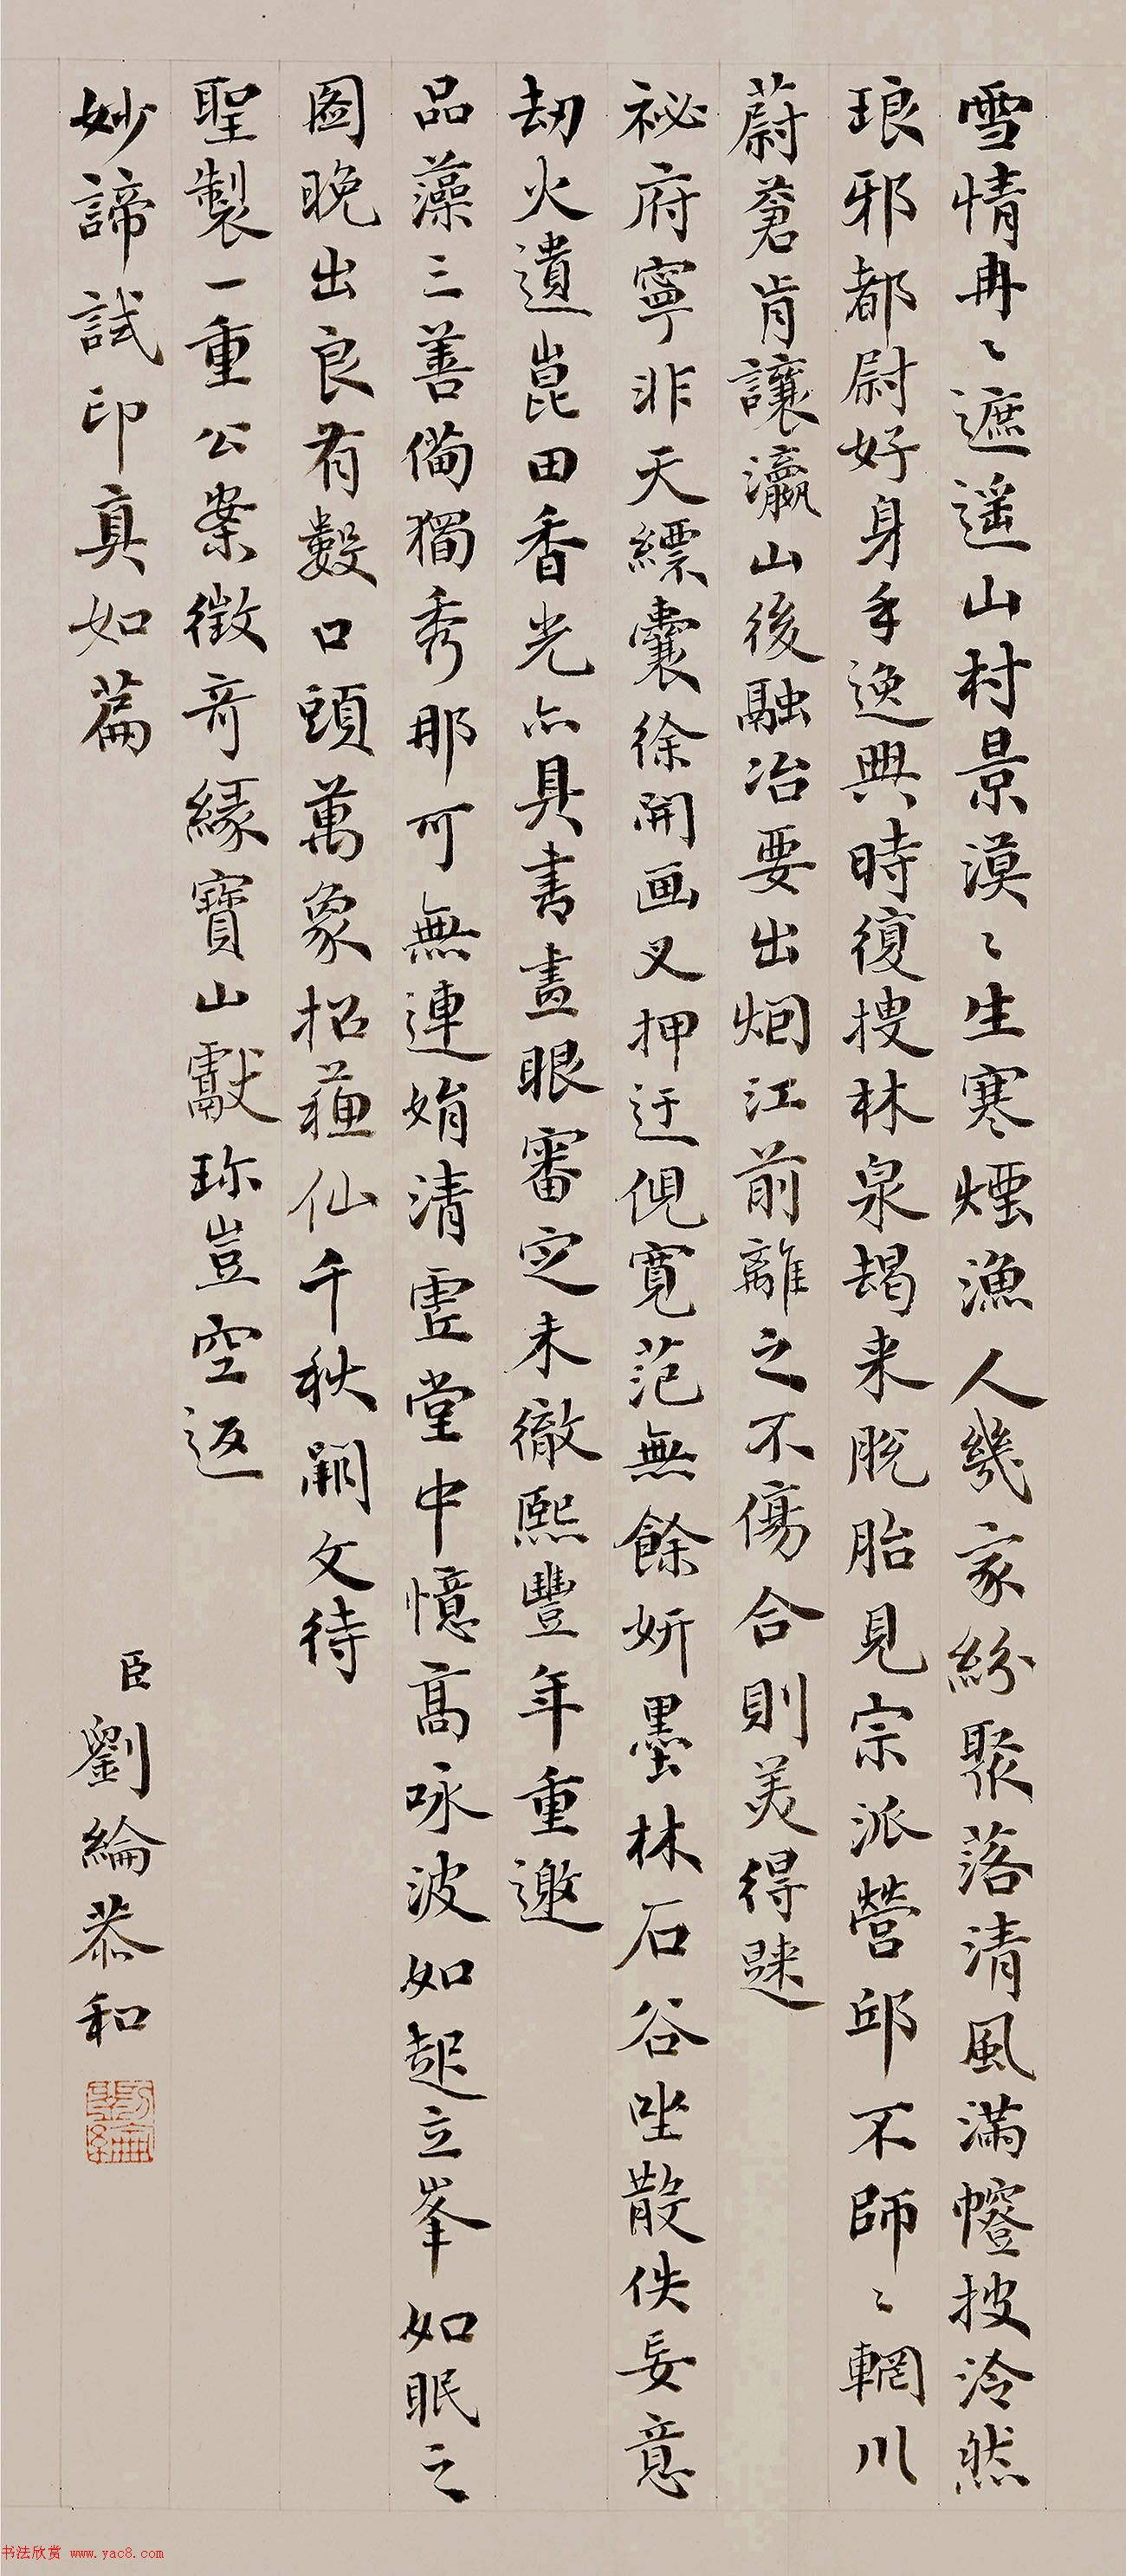 雪情冉〻遮遥山村景漠〻生寒煙漁人幾家紛聚落清風滿幰披泠然
琅邪都尉好身手逸興時復搜林泉朅来脫胎見宗派營邱不師〻輞川
蔚蒼肯讓瀛山後融冶要出烟江前離之不傷合則美得謎
祕府寧非天縹囊徐開画叉押迂倪寬范無餘妍墨林石谷唑散佚妄意
劫火遺崑田香光亦具書畫眼審定未徹熙豐年重邀
品藻三善備獨秀那可無連娟清虛堂中憶髙咏波如起立峯如眠之
圖晩出良有數口頭萬象招蘓仙千秋嗣文待
聖製一重公案徵奇緣寶山獻珎豈空返
妙諦試印真如篇
臣劉綸恭和
劉綸
书法欣赏 www.yac8.com